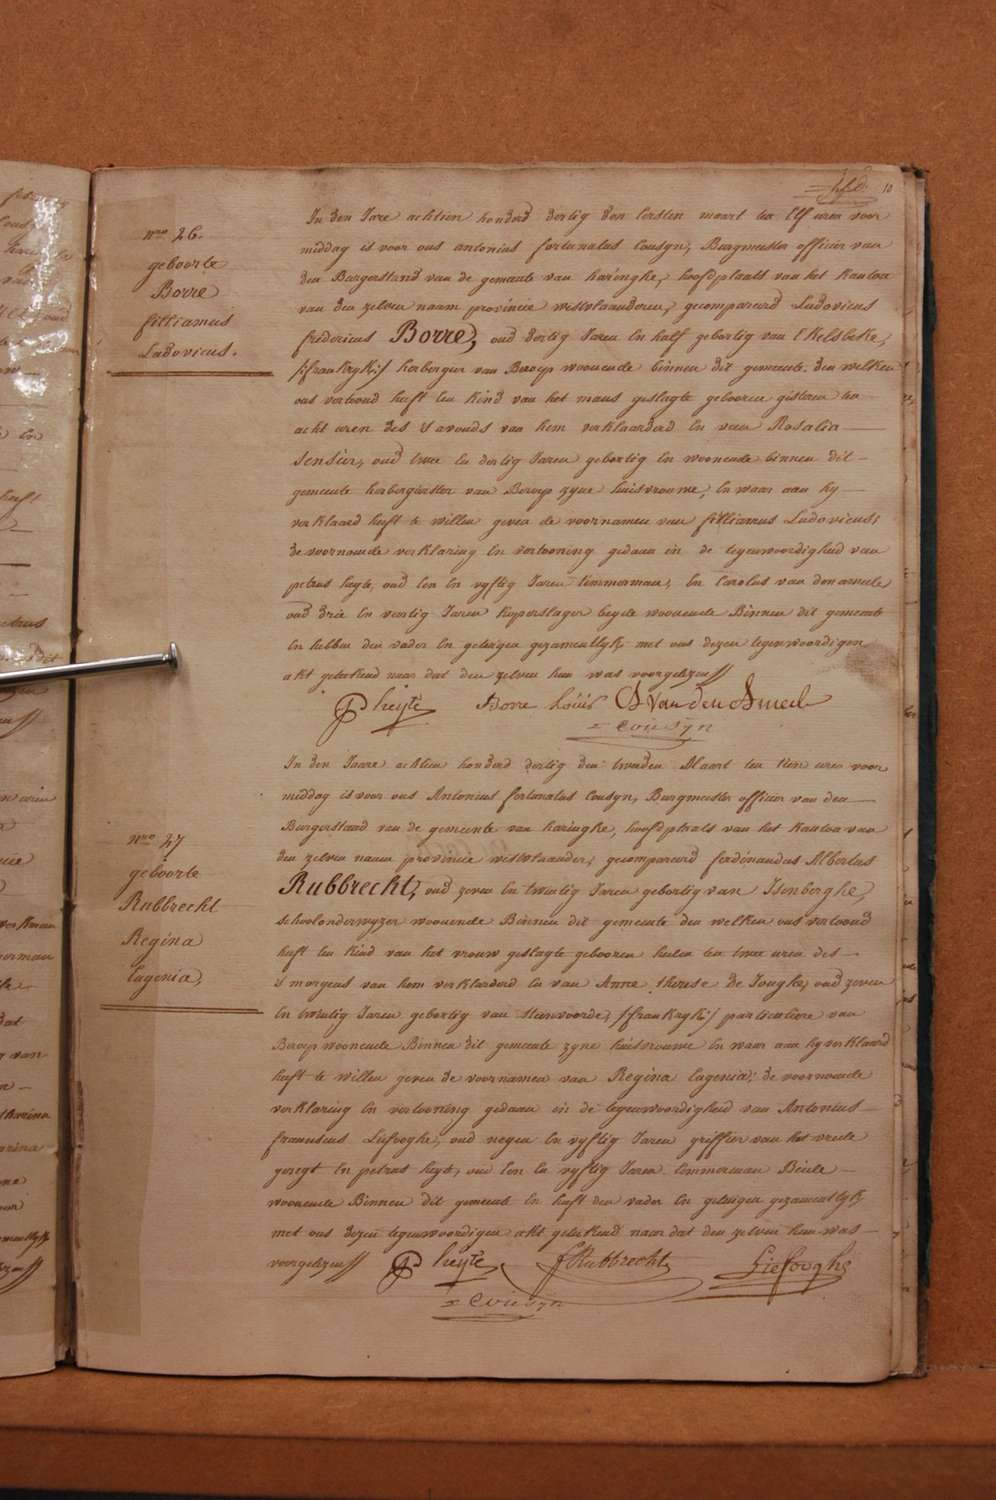 10
nro 26.
geboorte
Borre
filliamus
Ludovicus.
In den Jare achtien honderd dertig den Eersten maart ten Elf uren voor
middag is voor ons antonius fortunatus Cousyn, Burgmeester officier van
den Burgerstand van de gemeente van haringhe, hoofdplaats van het Kanton
van den zelven naam provincie westvlaanderen, gecompareerd Ludovicus
fredericus Borre, oud dertig Jaren En half gebortig van Ekelsbeke,
/:frankryk:/ herbergier van Beroep woonende binnen dit gemeente. den welken
ons vertoond heeft Een kind van het mans geslagte geboren gisteren ten
acht uren des s'avonds van hem verklaarderd En van Rosalia
Sensier, oud twee En dertig Jaren gebortig En woonende binnen dit
gemeente herbergierster van Beroep zyne huisvrouwe, En waar aan hy
verklaard heeft te willen geven de voornamen van filliamus Ludovicus;
de voornoemde verklaring En vertooning gedaan in de tegenwoordigheid van
petrus heyte, oud Een En vyftig Jaren timmerman, En Carolus van den ameele
oud drie En veertig Jaren koperslager beyde woonende Binnen dit gemeente
En hebben den vader En getuigen gezamentlyk met ons dezen tegenwoordigen
akt geteekend naar dat den zelven hun was voorgelezen //
P heyte Borre Louis C Van den Ameel
Cousyn
nro 27
geboorte
Rubbrecht
Regina
Eugenia,
In den Jaare achtien honderd dertig den tweeden Maart ten tien uren voor
middag is voor ons Antonius fortunatus Cousyn, Burgmeester officier van den
Burgerstand van de gemeente van haringhe, hoofdplaats van het Kanton van
den zelven naam provincie westvlaander, gecompareerd ferdinandus Albertus
Rubbrecht, oud zeven En twentig Jaren gebortig van Isenberghe,
schoolonderwyzer woonende Binnen dit gemeente den welken ons vertoond
heeft Een kind van het vrouw geslagte gebooren heden ten twee uren des
s'morgens van hem verklaarderd En van Anne therese De Jonghe, oud zeven
En twintig Jaren gebortig van Steenvoorde, /:frankryk:/ particuliere van
Beroep woonende Binnen dit gemeente zyne huisvrouwe En waar aan hy verklaard
heeft te willen geven de voornamen van Regina Eugenia; de voornoemde
verklaring En vertooning gedaan in de tegenwoordigheid van Antonius
franciscus Liefooghe, oud negen En vyftig Jaren griffier van het vrede
geregt En petrus heyte, oud Een En vyftig Jaren timmerman Beide
woonende Binnen dit gemeente En heeft den vader En getuigen gezamentlyk
met ons dezen tegenwoordigen akt geteekend naar dat den zelven hun was
voorgelezen // P heyte F Rubbrecht Liefooghe
Cousyn